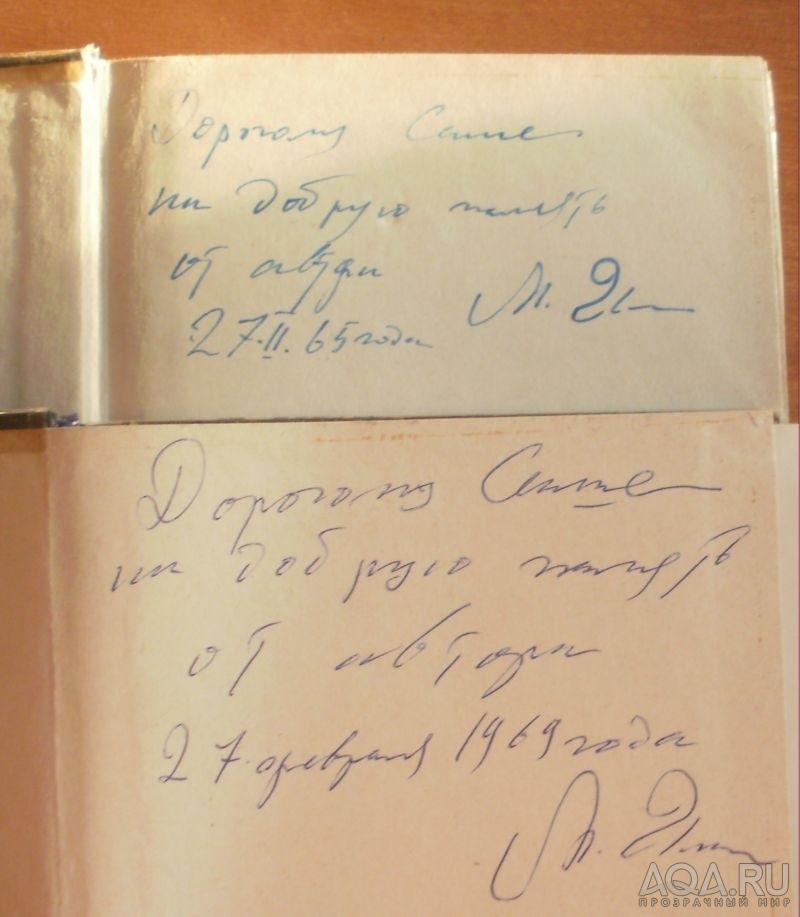 Дорогому Саше
на добрую память
от автора
27.II.65 года
М. Ил
Дорогому Саше
на добрую память
от автора
27 февраля 1969 года
М. Ил
AQA.RU
ПРОЗРАЧНЫЙ МИР